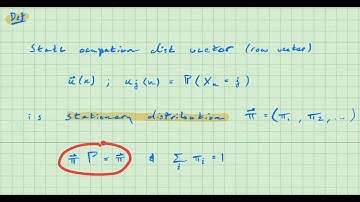 Def
State occupation dist vector (row vector)
u⃗(n) ; u_j(n) = P(X_n = j)
is stationary distribution π⃗ = (π₁, π₂, ...)
π⃗ P = π⃗ & ∑_i π_i = 1